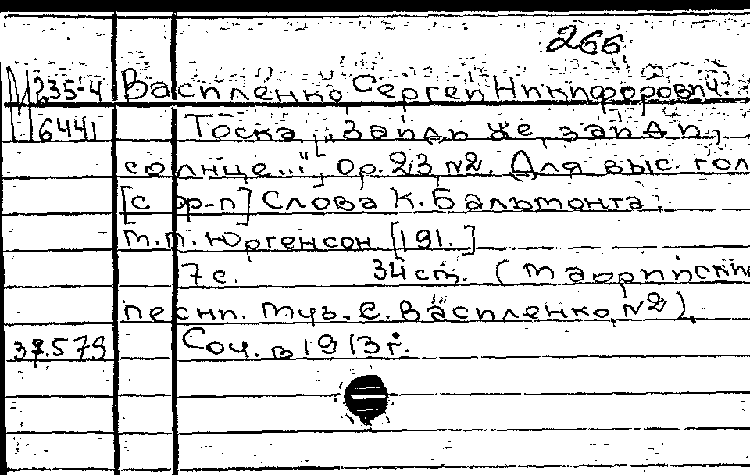 266
М 235-4 Василенко, Сергей Никифорович.
6441 Тоска „Зайди же, зайди,
солнце...", ор. 23, №2. Для выс. гол
[с ф-п] Слова К. Бальмонта.
М. П. Юргенсон [191. ]
7 с. 34 см. (Маорийские
песни. Муз. С. Василенко, №2).
37.579 Соч. в 1913 г.